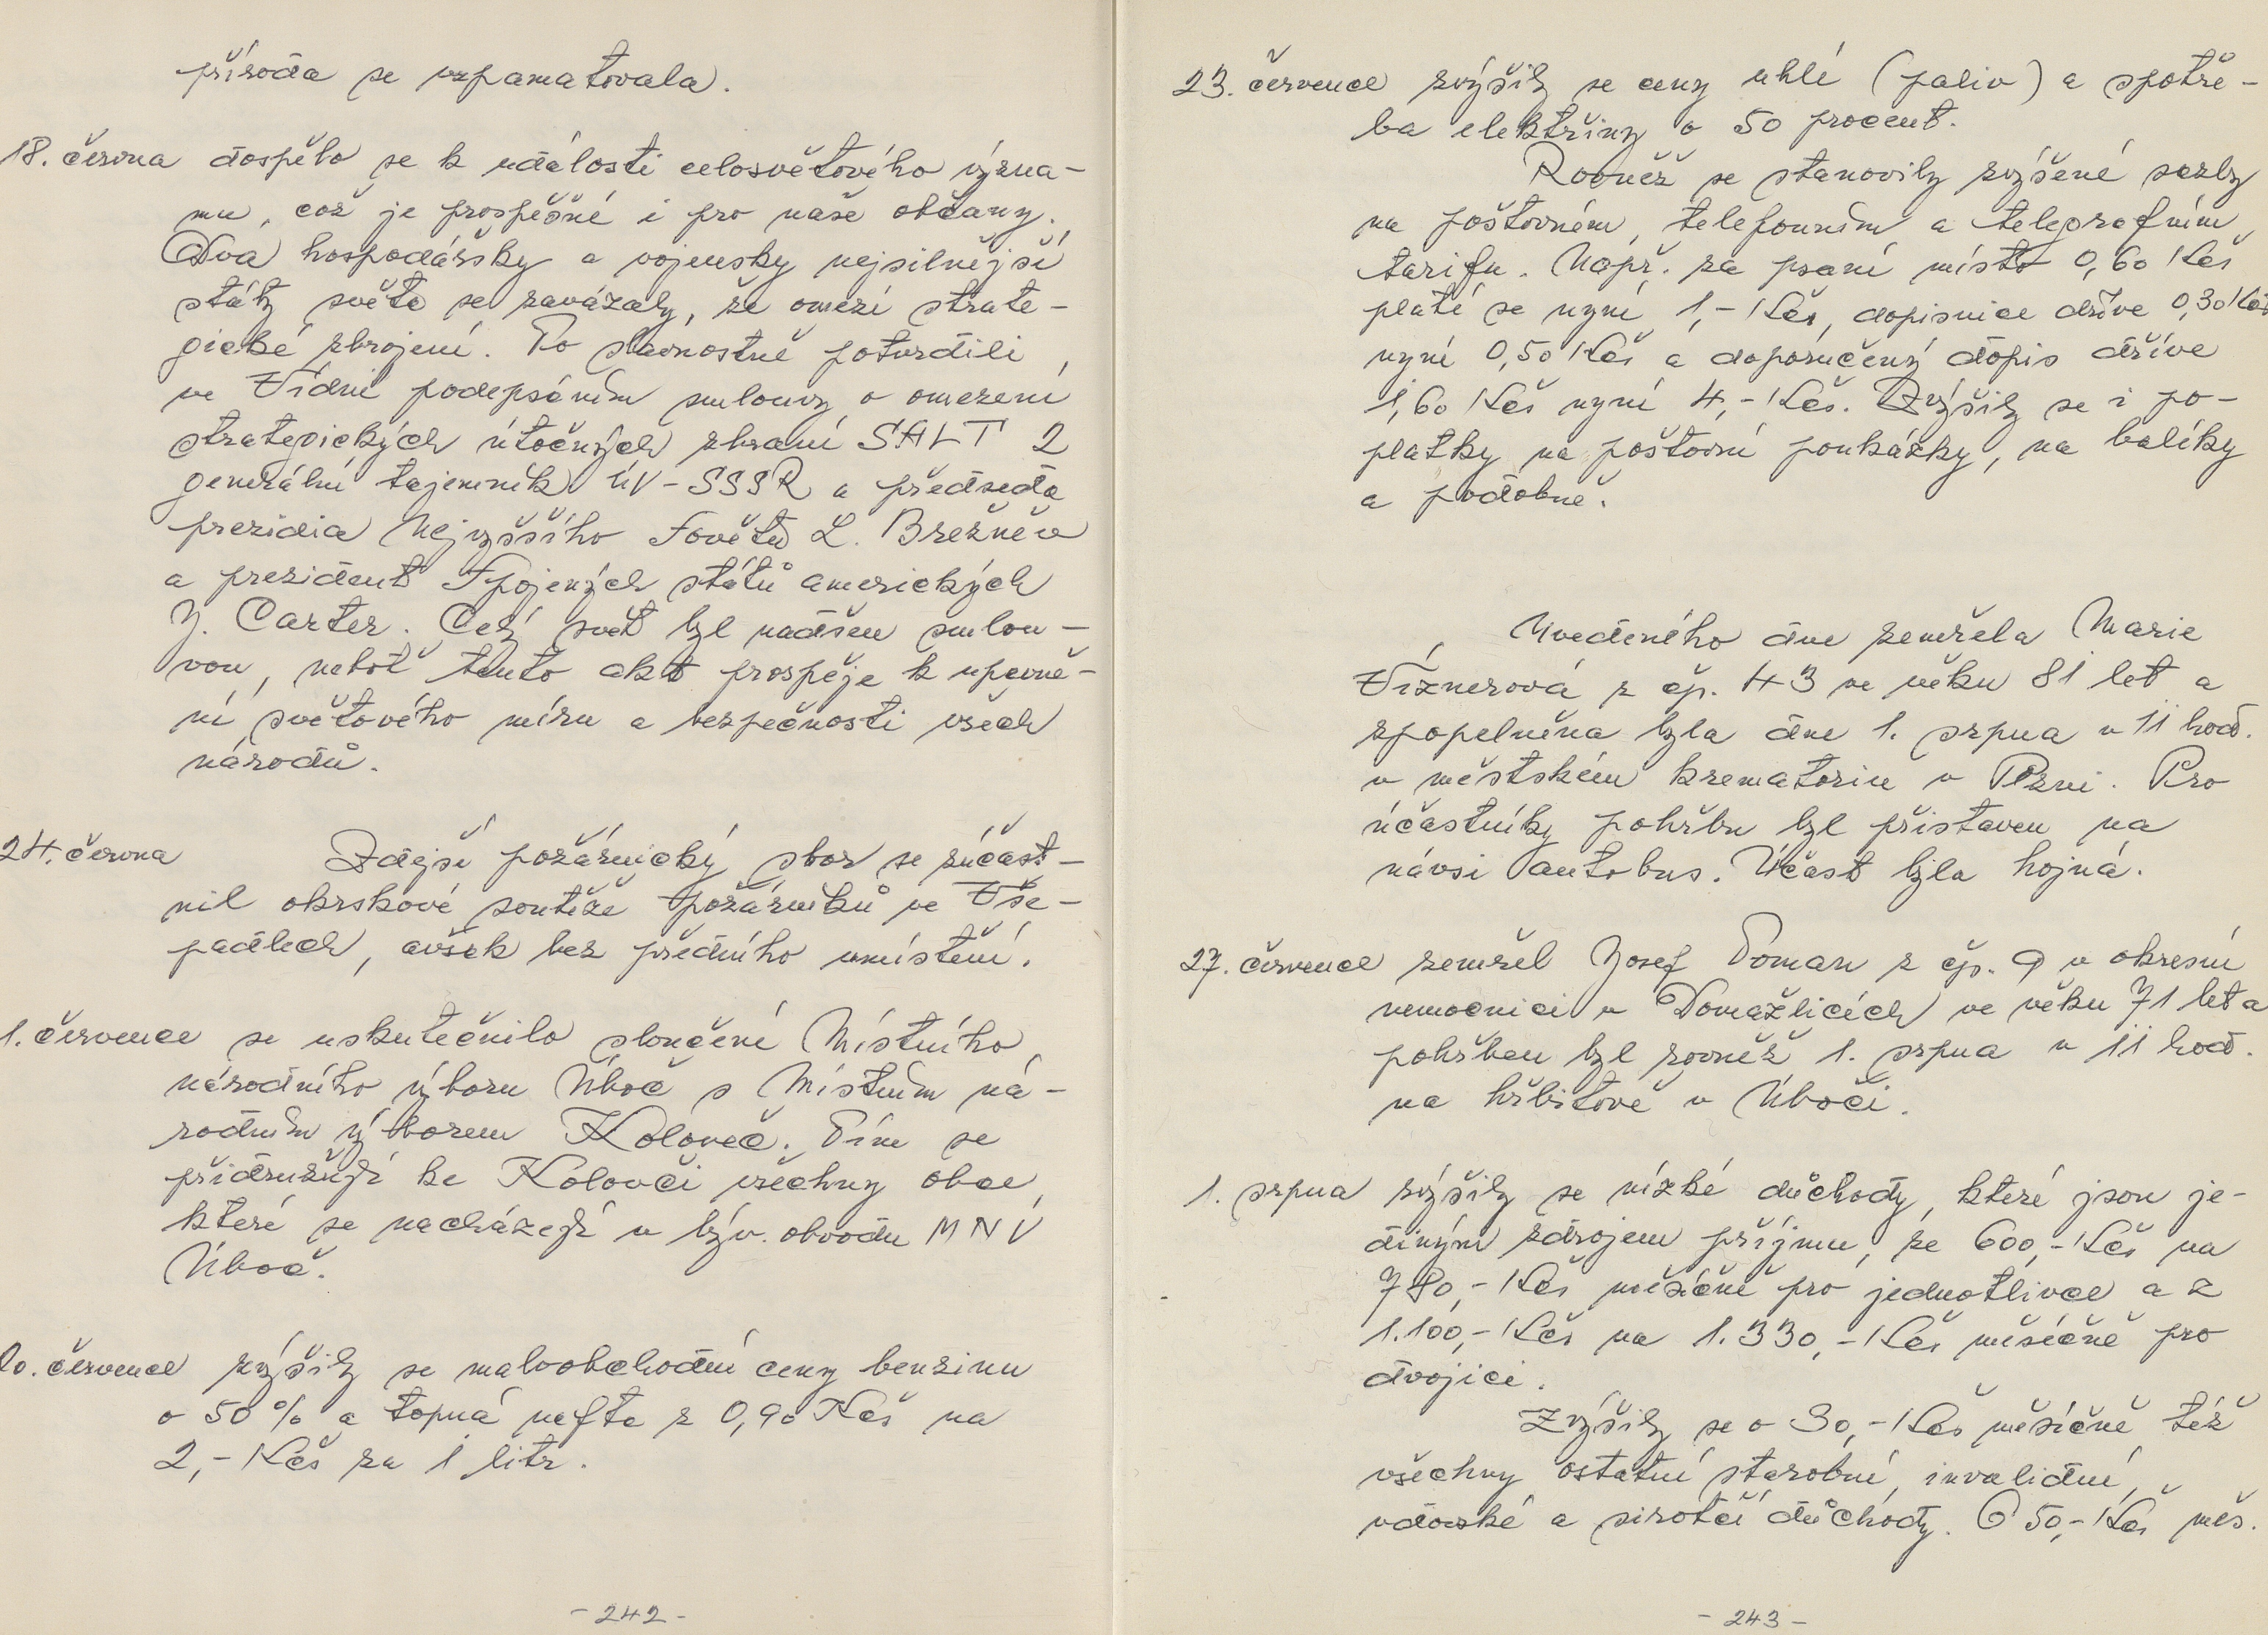 příroda se vzpamatovala.
18. června dospělo se k události celosvětového význa-
mu, což je prospěšné i pro naše občany.
Dvá hospodářsky a vojensky nejsilnější
státy světa se zavázaly, že omezí strate-
gické zbrojení. To slavnostně potvrdili
ve Vídni podepsáním smlouvy o omezení
strategických útočných zbraní SALT 2
generální tajemník ÚV-SSSR a předseda
prezidia Nejvyššího Sovětu L. Brežněv
a prezident Spojených států amerických
J. Carter. Celý svět byl nadšen smlou-
vou, neboť tento akt prospěje k upevně-
ní světového míru a bezpečnosti všech
národů.
24. června Zdejší požárnický sbor se zúčast-
nil okrskové soutěže požárníků ve Vše-
padlech, avšak bez předního umístění.
1. července se uskutečnilo sloučení Místního
národního výboru Úboč s Místním ná-
rodním výborem Koloveč. Tím se
přidružují ke Kolovči všechny obce,
které se nacházejí v býv. obvodu MNV
Úboč.
20. července zvýšily se maloobchodní ceny benzinu
o 50% a topná nafta z 0,90 Kčs na
2,- Kčs za 1 litr.
- 242 -
23. července zvýšily se ceny uhlí (paliv) a spotře-
ba elektřiny o 50 procent.
Rovněž se stanovily zvýšené sazby
na poštovném, telefonním a telegrafním
tarifu. Např. za psaní místo 0,60 Kčs
platí se nyní 1,- Kčs, dopisnice dříve 0,30 Kčs
nyní 0,50 Kčs a doporučený dopis dříve
1,60 Kčs nyní 4,- Kčs. Zvýšily se i po-
platky na poštovní poukázky, na balíky
a podobně.
Uvedeného dne zemřela Marie
Víznerová z čp. 43 ve věku 81 let a
zpopelněna byla dne 1. srpna v 11 hod.
v městském krematoriu v Plzni. Pro
účastníky pohřbu byl přistaven na
návsi autobus. Účast byla hojná.
27. července zemřel Josef Toman z čp. 9 v okresní
nemocnici v Domažlicích ve věku 71 let a
pohřben byl rovněž 1. srpna v 11 hod.
na hřbitově v Úboči.
1. srpna zvýšily se nízké důchody, které jsou je-
diným zdrojem příjmu, ze 600,- Kčs na
780,- Kčs měsíčně pro jednotlivce a z
1.100,- Kčs na 1.330,- Kčs měsíčně pro
dvojici.
Zvýšily se o 30,- Kčs měsíčně též
všechny ostatní starobní, invalidní,
vdovské a sirotčí důchody. O 50,- Kčs měs.
- 243 -